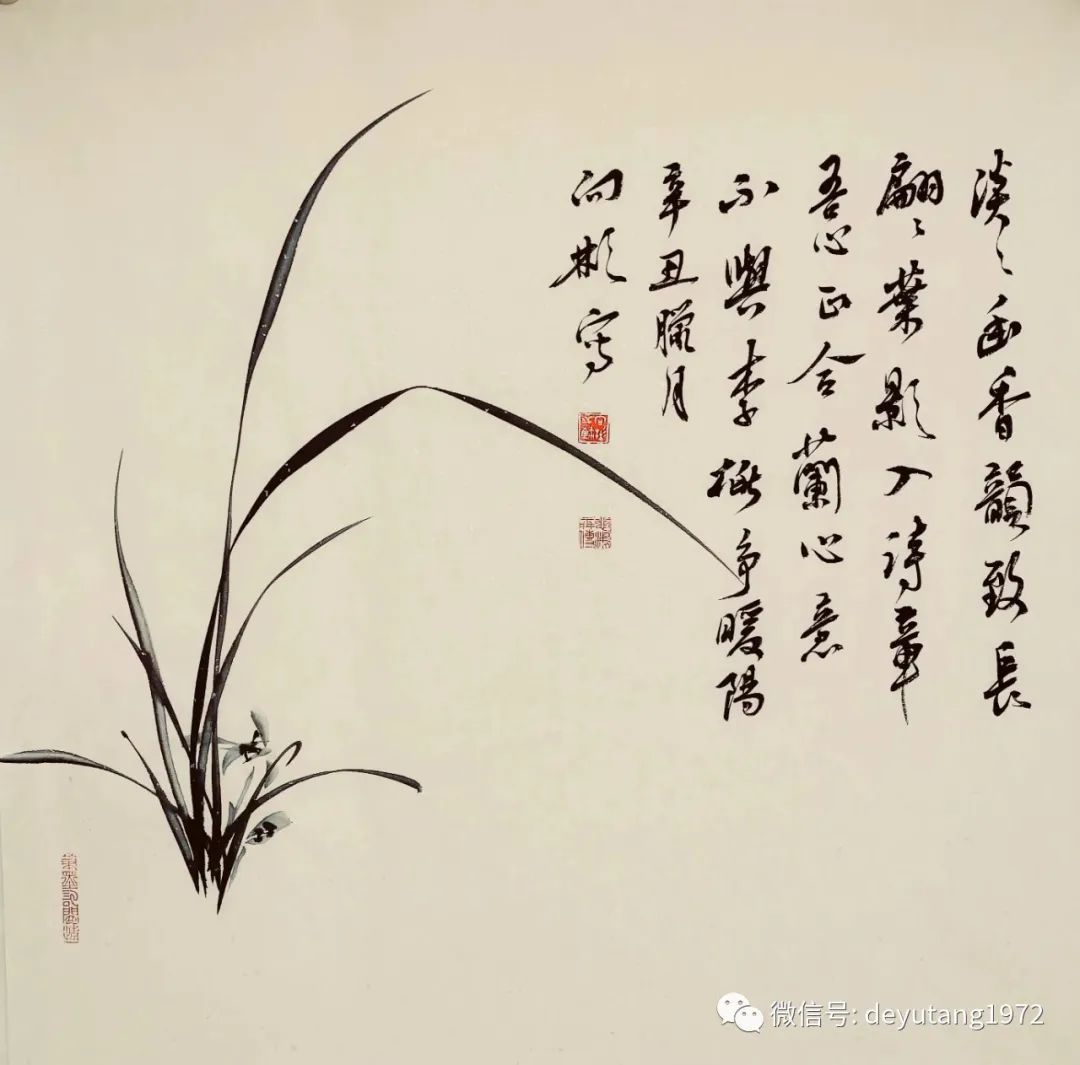 淡〻幽香韻致長
翩〻葉影入詩章
吾心正合蘭心意
不與李桃爭暖陽
辛丑臘月
彬寫
微信号: deyutang1972